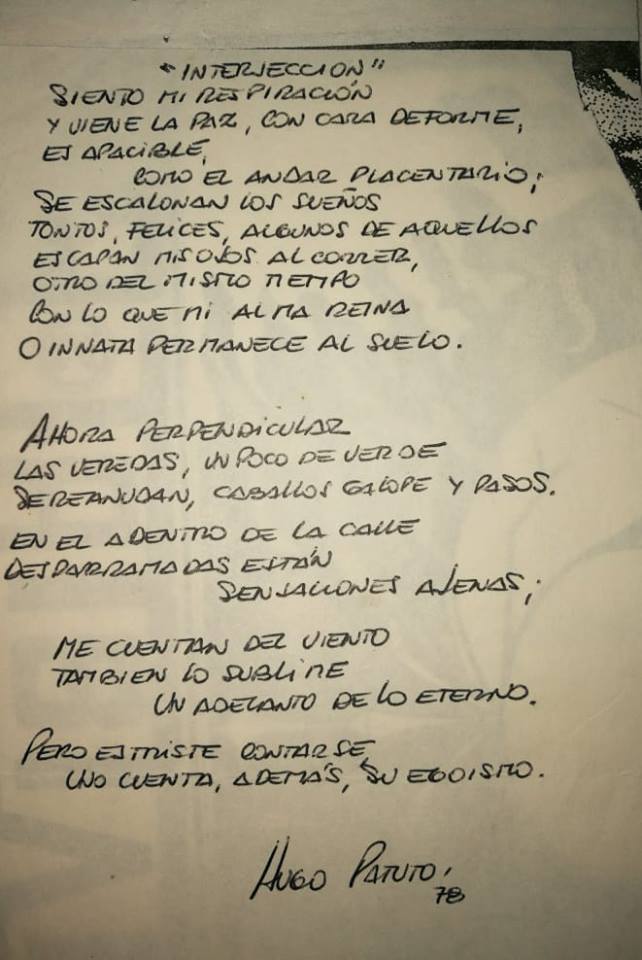 "INTERJECCION"
SIENTO MI RESPIRACIÓN
Y VIENE LA PAZ, CON CARA DEFORME,
ES APACIBLE,
COMO EL ANDAR PLACENTARIO;
SE ESCALONAN LOS SUEÑOS
TONTOS, FELICES, ALGUNOS DE AQUELLOS
ESCAPAN MIS OJOS AL CORRER,
OTRO DEL MISMO TIEMPO
CON LO QUE MI ALMA REINA
O INNATA PERMANECE AL SUELO.
AHORA PERPENDICULAR
LAS VEREDAS, UN POCO DE VERDE
SE REANUDAN, CABALLOS GALOPE Y PASOS.
EN EL ADENTRO DE LA CALLE
DESPARRAMADAS ESTÁN
SENSACIONES AJENAS;
ME CUENTAN DEL VIENTO
TAMBIEN LO SUBLIME
UN ADELANTO DE LO ETERNO.
PERO ES TRISTE CONTARSE
UNO CUENTA, ADEMÁS, SU EGOISMO.
HUGO PATUTO!
78